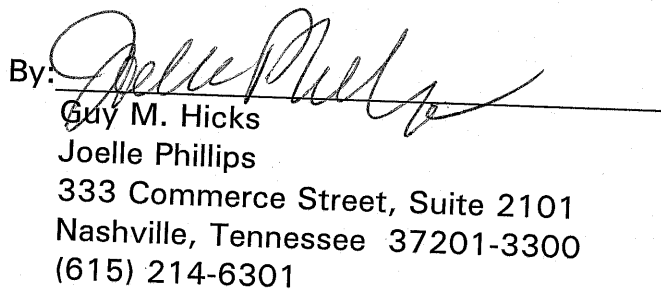 By: Joelle Phillips
Guy M. Hicks
Joelle Phillips
333 Commerce Street, Suite 2101
Nashville, Tennessee 37201-3300
(615) 214-6301